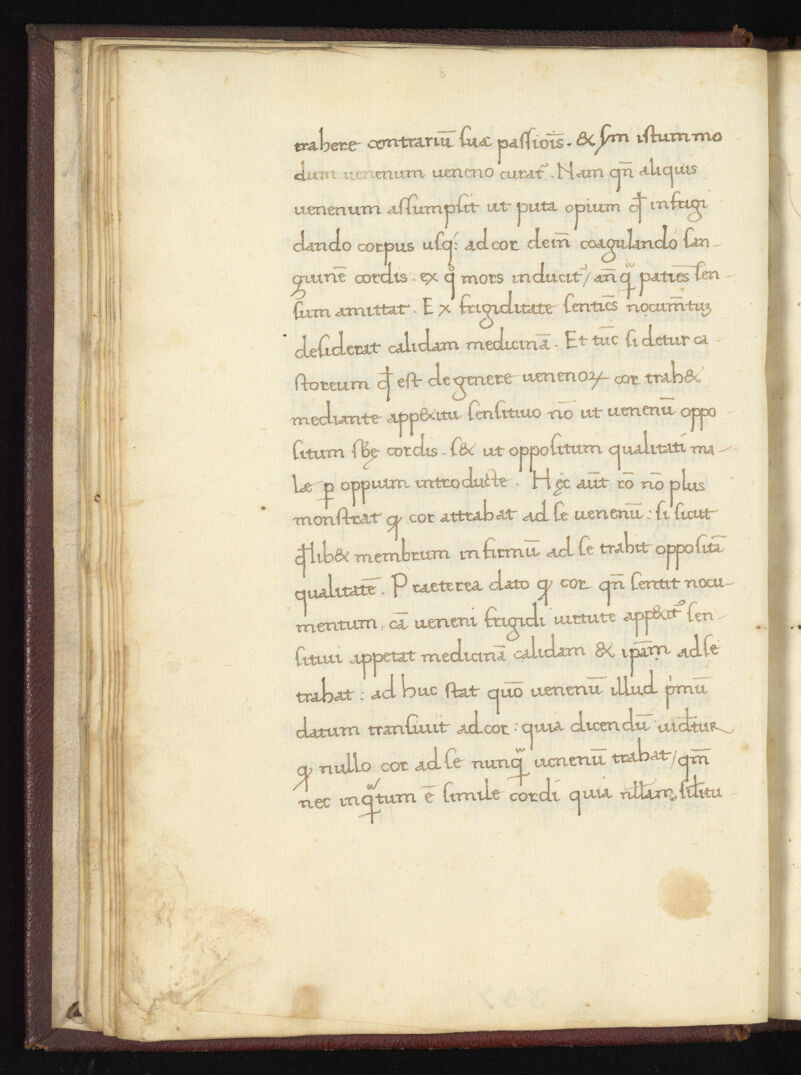 trahere contrariū suæ passiōis. & scm̄ istum mo
dum uenenum ueneno curat᷑. Nam qn̄ aliquis
uenenum assumpsit ut puta opium qđ infrigi
dando corpus usq; ad cor dein̄ coagulando san-
guinē cordis. ex qͦ mors inducit᷑/ anq̄ᵃ patiēs sen-
sum amittat. Ex frigiditate sentiēs nocum̄tuꝫ
desiderat calidam medicinā. Et tūc si detur ca-
storeum qđ est de genere uenenoꝝ cor trah&
mediante app&itu sensitiuo nō ut uenenū oppo-
situm sbę cordis. s& ut oppositum qualitati ma-
le ꝑ oppium introducte. Hęc aūt rō nō plus
monstrat ꝙ cor attrahat ad se uenenū: si sicut
qđlib& membrum infirmū ad se trahit oppositā
qualitatē. Praeterea dato ꝙ cor qn̄ sentit nocu-
mentum, cā ueneni frigidi uirtute app&it᷑ sen-
sitiui appetat medicinā calidam & ip̄am ad se
trahat: ad huc stat quō uenenū illud pͥmū
datum transiuit ad cor: quia dicendū uid&ur
ꝙ nullo cor ad se nunq̄ᵃ uenenū trahat/ qm̄
nec inq̄ᵃtum ē simile cordi quia nłłam siłitu-